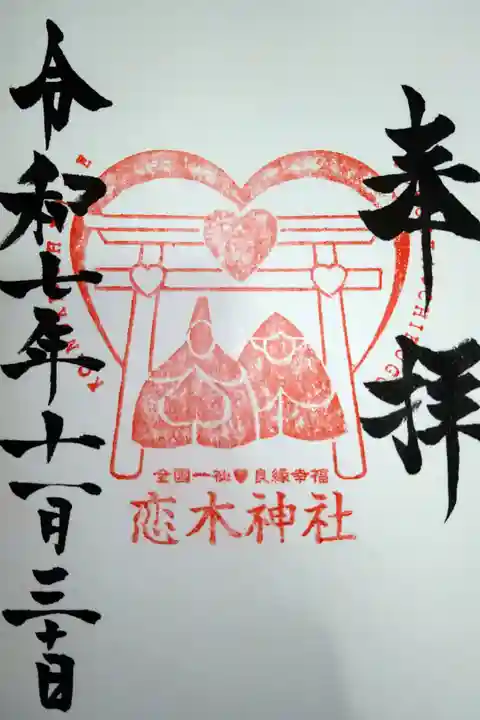 奉拝
全國一社♥良縁幸福
恋木神社
令和七年十一月三十日